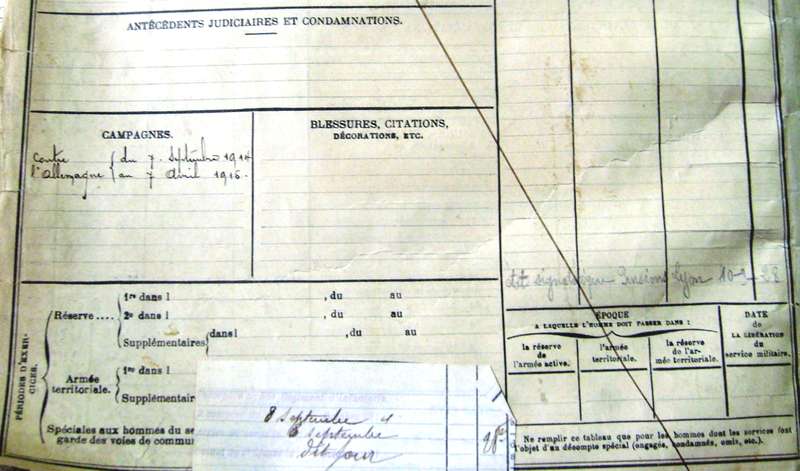 ANTÉCÉDENTS JUDICIAIRES ET CONDAMNATIONS.
CAMPAGNES.
BLESSURES, CITATIONS,
DÉCORATIONS, ETC.
contre du 7 Septembre 1914
l'Allemagne au 7 Avril 1916.
signalétique Pensions Lyon 10-9-28
PÉRIODES D'EXERCICES.
Réserve ....
1re dans l , du au
2e dans l , du au
Supplémentaires dans l , du au
Armée
territoriale.
1re dans l
Supplémentair
Spéciales aux hommes du se
garde des voies de commu
8 Septembre
Septembre
dit jour
ÉPOQUE
A LAQUELLE L'HOMME DOIT PASSER DANS :
la réserve
de
l'armée active.
l'armée
territoriale.
la réserve
de l'ar-
mée territoriale.
DATE
de
LA LIBÉRATION
du
service militaire.
Ne remplir ce tableau que pour les hommes dont les services font
l'objet d'un décompte spécial (engagés, condamnés, omis, etc.).